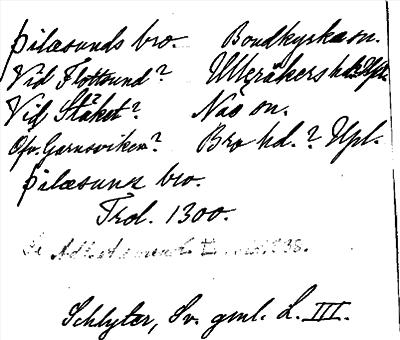 þilæsunds bro. Bondkyrka sn.
Vid Flottsund? Ulleråkers hd. Upl.
Vid Stäket? Näs sn.
Ofv. Garnsviken? Bro hd.? Upl.
þilæsunz bro.
Trd. 1300.
Schlyter, Sv. gml. L. III.